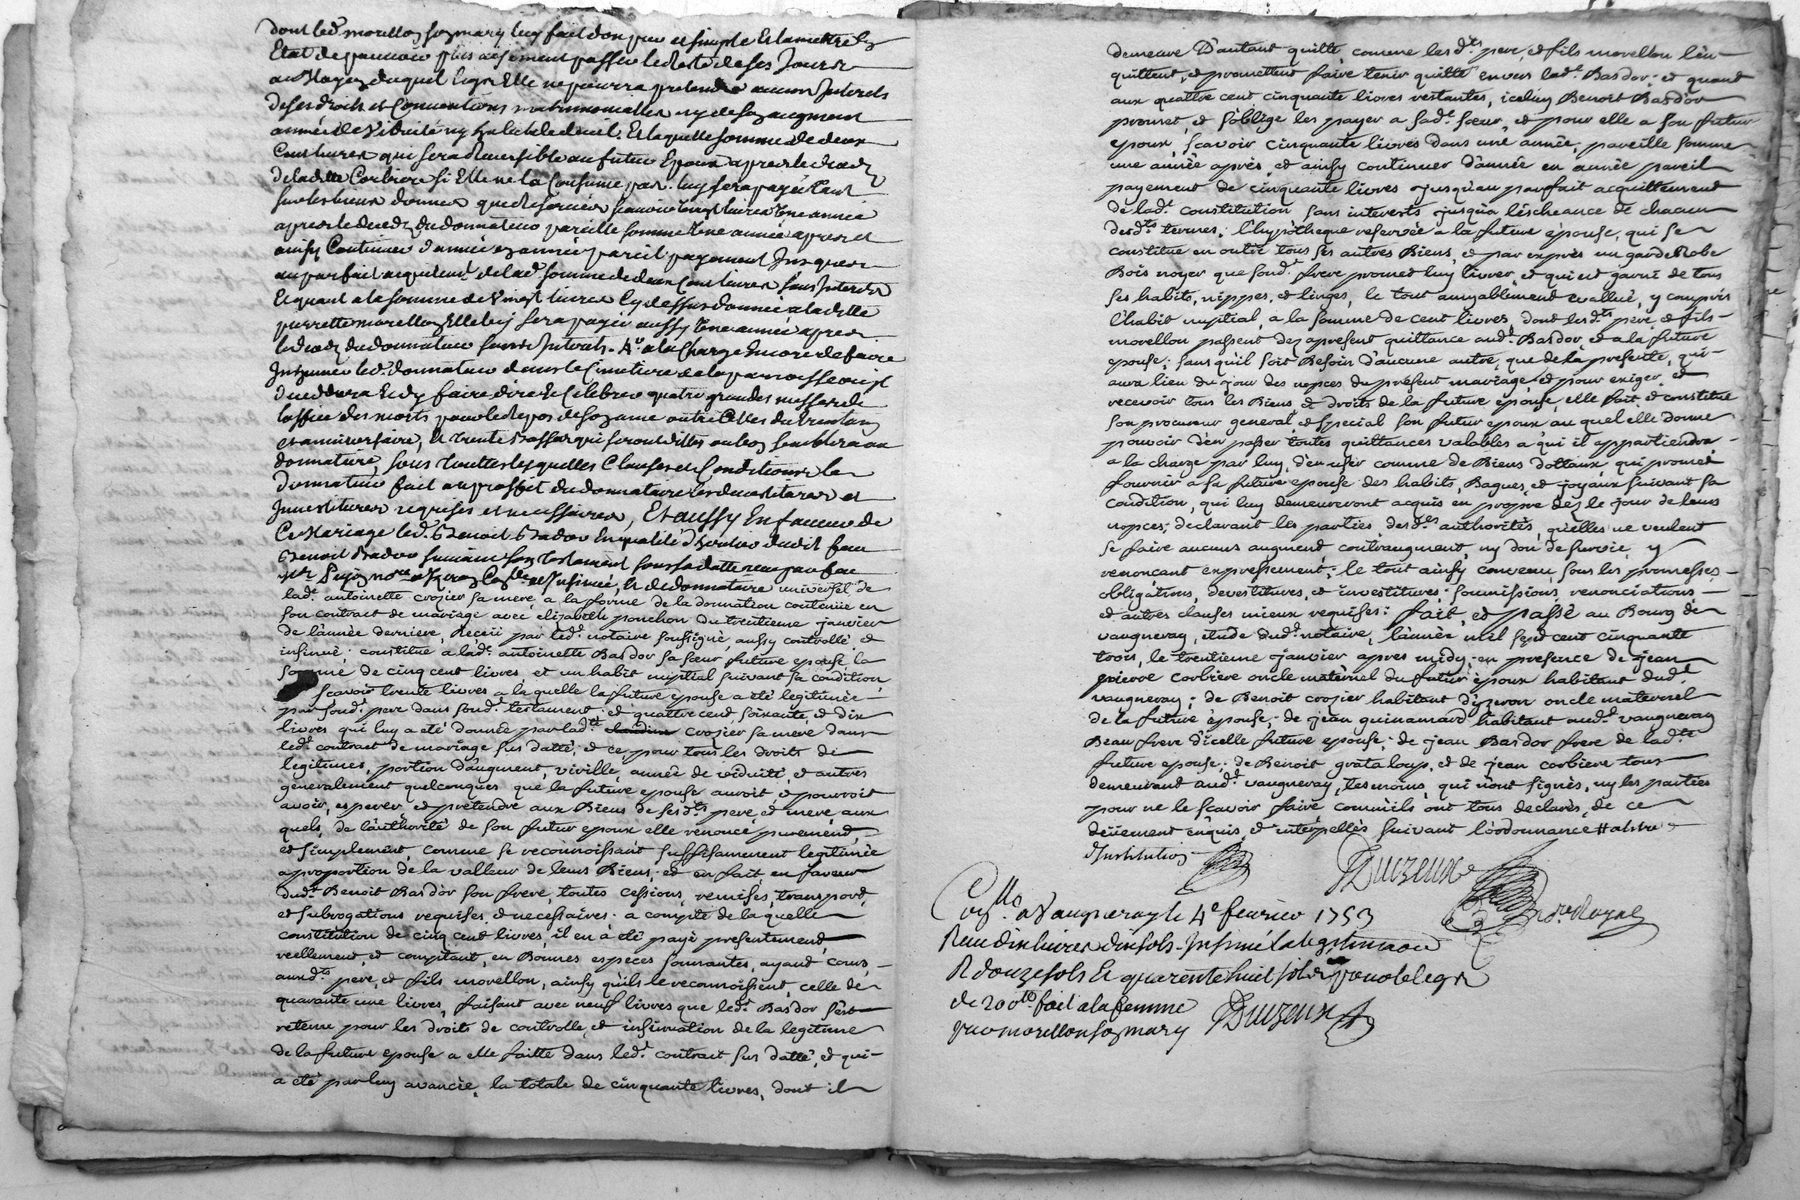 dont led. morellon son mary luy fait don pur et simple Et la mettre en
Etat de pouvoir plus aisement passer le reste de ses Jours
au moyen duquel legs Elle ne pourra pretendre aucun Interets
de ses droits et Conventions matrimoniales ny de son augment
année de Viduité ny habit de deuil. Et laquelle somme de deux
Cent livres qui sera Reversible au futur Epoux apres le deceds
de ladite Corbiere si Elle ne la Consume pas. luy sera payée tant
sur les biens donnés que Reservés scavoir vingt livres Une année
apres le deceds du donnateur pareille somme Une année apres et
ainsy Continuer d'année en année pareil payement Jusques
au parfait acquitemt. de lad. somme de deux Cent livres sans Interets
Et quant a la somme de Vingt livres Cy dessus donnée a ladite
pierrette morellon Elle luy sera payée aussy Une année apres
le deceds du donnateur sans Interets. 4° a la Charge Encore de faire
Inhumer led. donnateur dans le Cimetiere de la parroisse ou il
decedera Et d'y faire dire et Celebrer quatre grandes messes de
l'office des morts pour le Repos de son ame outre Celles
et anniversaire, et trente Basses qui seront dittes ou bon semblera au
donnataire, sous touttes lesquelles Clauses et Conditions le
donnateur fait au proffit du donnataire les devestitures et
Investitures requises et necessaires, Et aussy En faveur de
Ce Mariage led. Benoit Basdor En qualité d'heritier dudit feu
Benoit Basdor suivant son testament sous sa datte receu par feu
et Insinué, et de donnataire universel de
lade. antoinette crozier sa mere, a la forme de la donnation contenüe en
son contract de mariage avec elizabeth ponchon du trentieme janvier
de l'année derniere, Receü par led. notaire soussigné, aussy controllé et
insinué; constitue a lade. antoinette Basdor sa sœur future epouse, la
somme de cinq cent livres, et un habit nuptial suivant sa condition,
scavoir trente livres, a la quelle la future epouse a été legitimée
par sond. pere dans sond. testament; et quattre cent, soixante, et dix
livres qui luy a été donnée par lade. crozier sa mere dans
led. contract de mariage sus datté; et ce pour tous les droits de
legitimes, portion d'augment, viville, année de viduité, et autres
generalement quelconques que la future epouse auroit et pouvoit
avoir, esperer et pretendre aux Biens de sesdts. pere, et mere, aux
quels, de l'authorité de son futur epoux elle renonce purement,
et simplement, comme se reconnoissant suffisamment legitimée
a proportion de la valleur de leurs Biens; et en fait, en faveur
dud. Benoit Basdor son frere, toutes cessions, remises, transport,
et subrogations requises, et necessaires: a compte de la quelle
constitution de cinq cent livres, il en a été payé presentement,
reellement, et comptant, en Bonnes especes sonnantes, ayant cours,
auxdts. pere, et fils morellon, ainsy qu'ils le reconnoissent, celle de
quarante une livres, faisant avec neuf livres que led. Basdor s'est
retenu pour les droits de controlle, et insinuation de la legitime
de la future epouse a elle faitte dans led. contract sus datté, et qui
a été par luy avancée, la totale de cinquante livres, dont il
demeure D'autant quitte, comme lesdts. pere, et fils morellon l'en
quittent, et promettent faire tenir quitte envers lade. Basdor; et quand
aux quattre cent cinquante livres restantes, iceluy Benoit Basdor
promet, et s'oblige les payer a sade. sœur, et pour elle a son futur
epoux, scavoir cinquante livres dans une année, pareille somme
une année après, et ainsy continuer d'année en année pareil
payement de cinquante livres jusqu'au parfait acquittement
de lade. constitution sans interests jusqu'a l'escheance de chacun
desdts. termes; l'hypotheque reservée a la future epouse, qui se
constitue en outre tous ses autres Biens, et par exprés un garde Robe
Bois noyer que sond. frere promet luy livrer, et qui est garni de tous
ses habits, nippes, et linges, le tout amyablement evallüé, y compris
l'habit nuptial, a la somme de cent livres, dont lesdts. pere, et fils
morellon passent dez apresent quittance aud. Basdor, et a la future
epouse; sans qu'il soit Besoin d'aucune autre, que de la presente, qui
aura lieu du jour des nopces du present mariage, et pour exiger, et
recevoir tous les Biens, et droits de la future epouse, elle fait et constitue
son procureur general, et special son futur epoux au quel elle donne
pouvoir d'en passer toutes quittances valables a qui il appartiendra
a la charge par luy d'en user comme de Biens dottaux, qui promet
fournir a sa future epouse des habits, Bagues, et joyaux suivant sa
condition, qui luy demeureront acquis en propre dez le jour de leurs
nopces; declarant les parties, desdes. authorités, qu'elles ne veulent
se faire aucuns augment contraugment, ny don de survie, y
renoncant expressement; le tout ainsy convenu, sous les promesses,
obligations, devestitures, et investitures; soumissions, renonciations
et autres clauses mieux requises: fait, et passé au Bourg de
vaugneray, etude dud. notaire, l'année mil sept cent cinquante
trois, le trentieme janvier apres midy; en presence de jean
pierre corbiere oncle maternel du futur epoux habitant dud.
vaugneray; de Benoit crozier habitant d'yzeron oncle maternel
de la future epouse; de jean guinamard habitant aud. vaugneray
Beau frere d'icelle future epouse; de jean Basdor frere de lade.
future epouse; de Benoit grataloup, et de jean corbiere tous
demeurant aud. vaugneray, tesmoins, qui n'ont signés, ny les parties
pour ne le scavoir faire comm'ils ont tous declarés, de ce
deüement enquis, et interpellés suivant l'ordonnance
d'Institution
Duizeux
Conllé. a Vaugneray le 4e février 1753
Reçu dix livres dix sols. Insinué la legitimaon
R douze sols Et quarente huit sols pour le legs
de 200lt. fait a la femme
par morellon son mary Duizeux